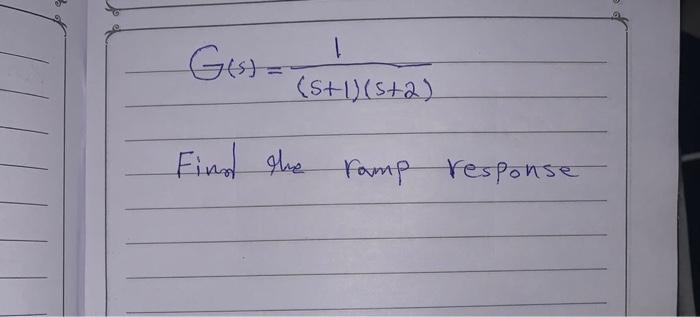 G(s) = 1/((S+1)(S+2))
Find the ramp response